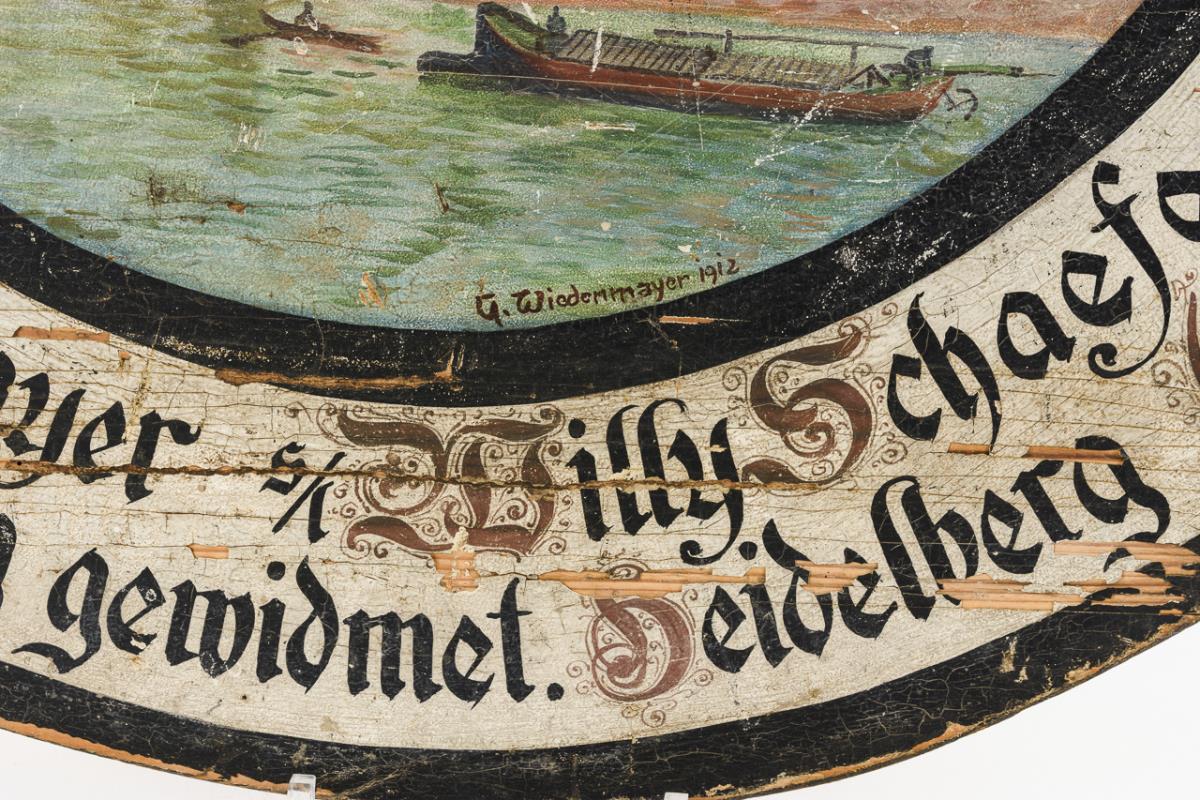 G. Wiedenmayer 1912
yer s/l Willy Schaef
gewidmet. Heidelberg